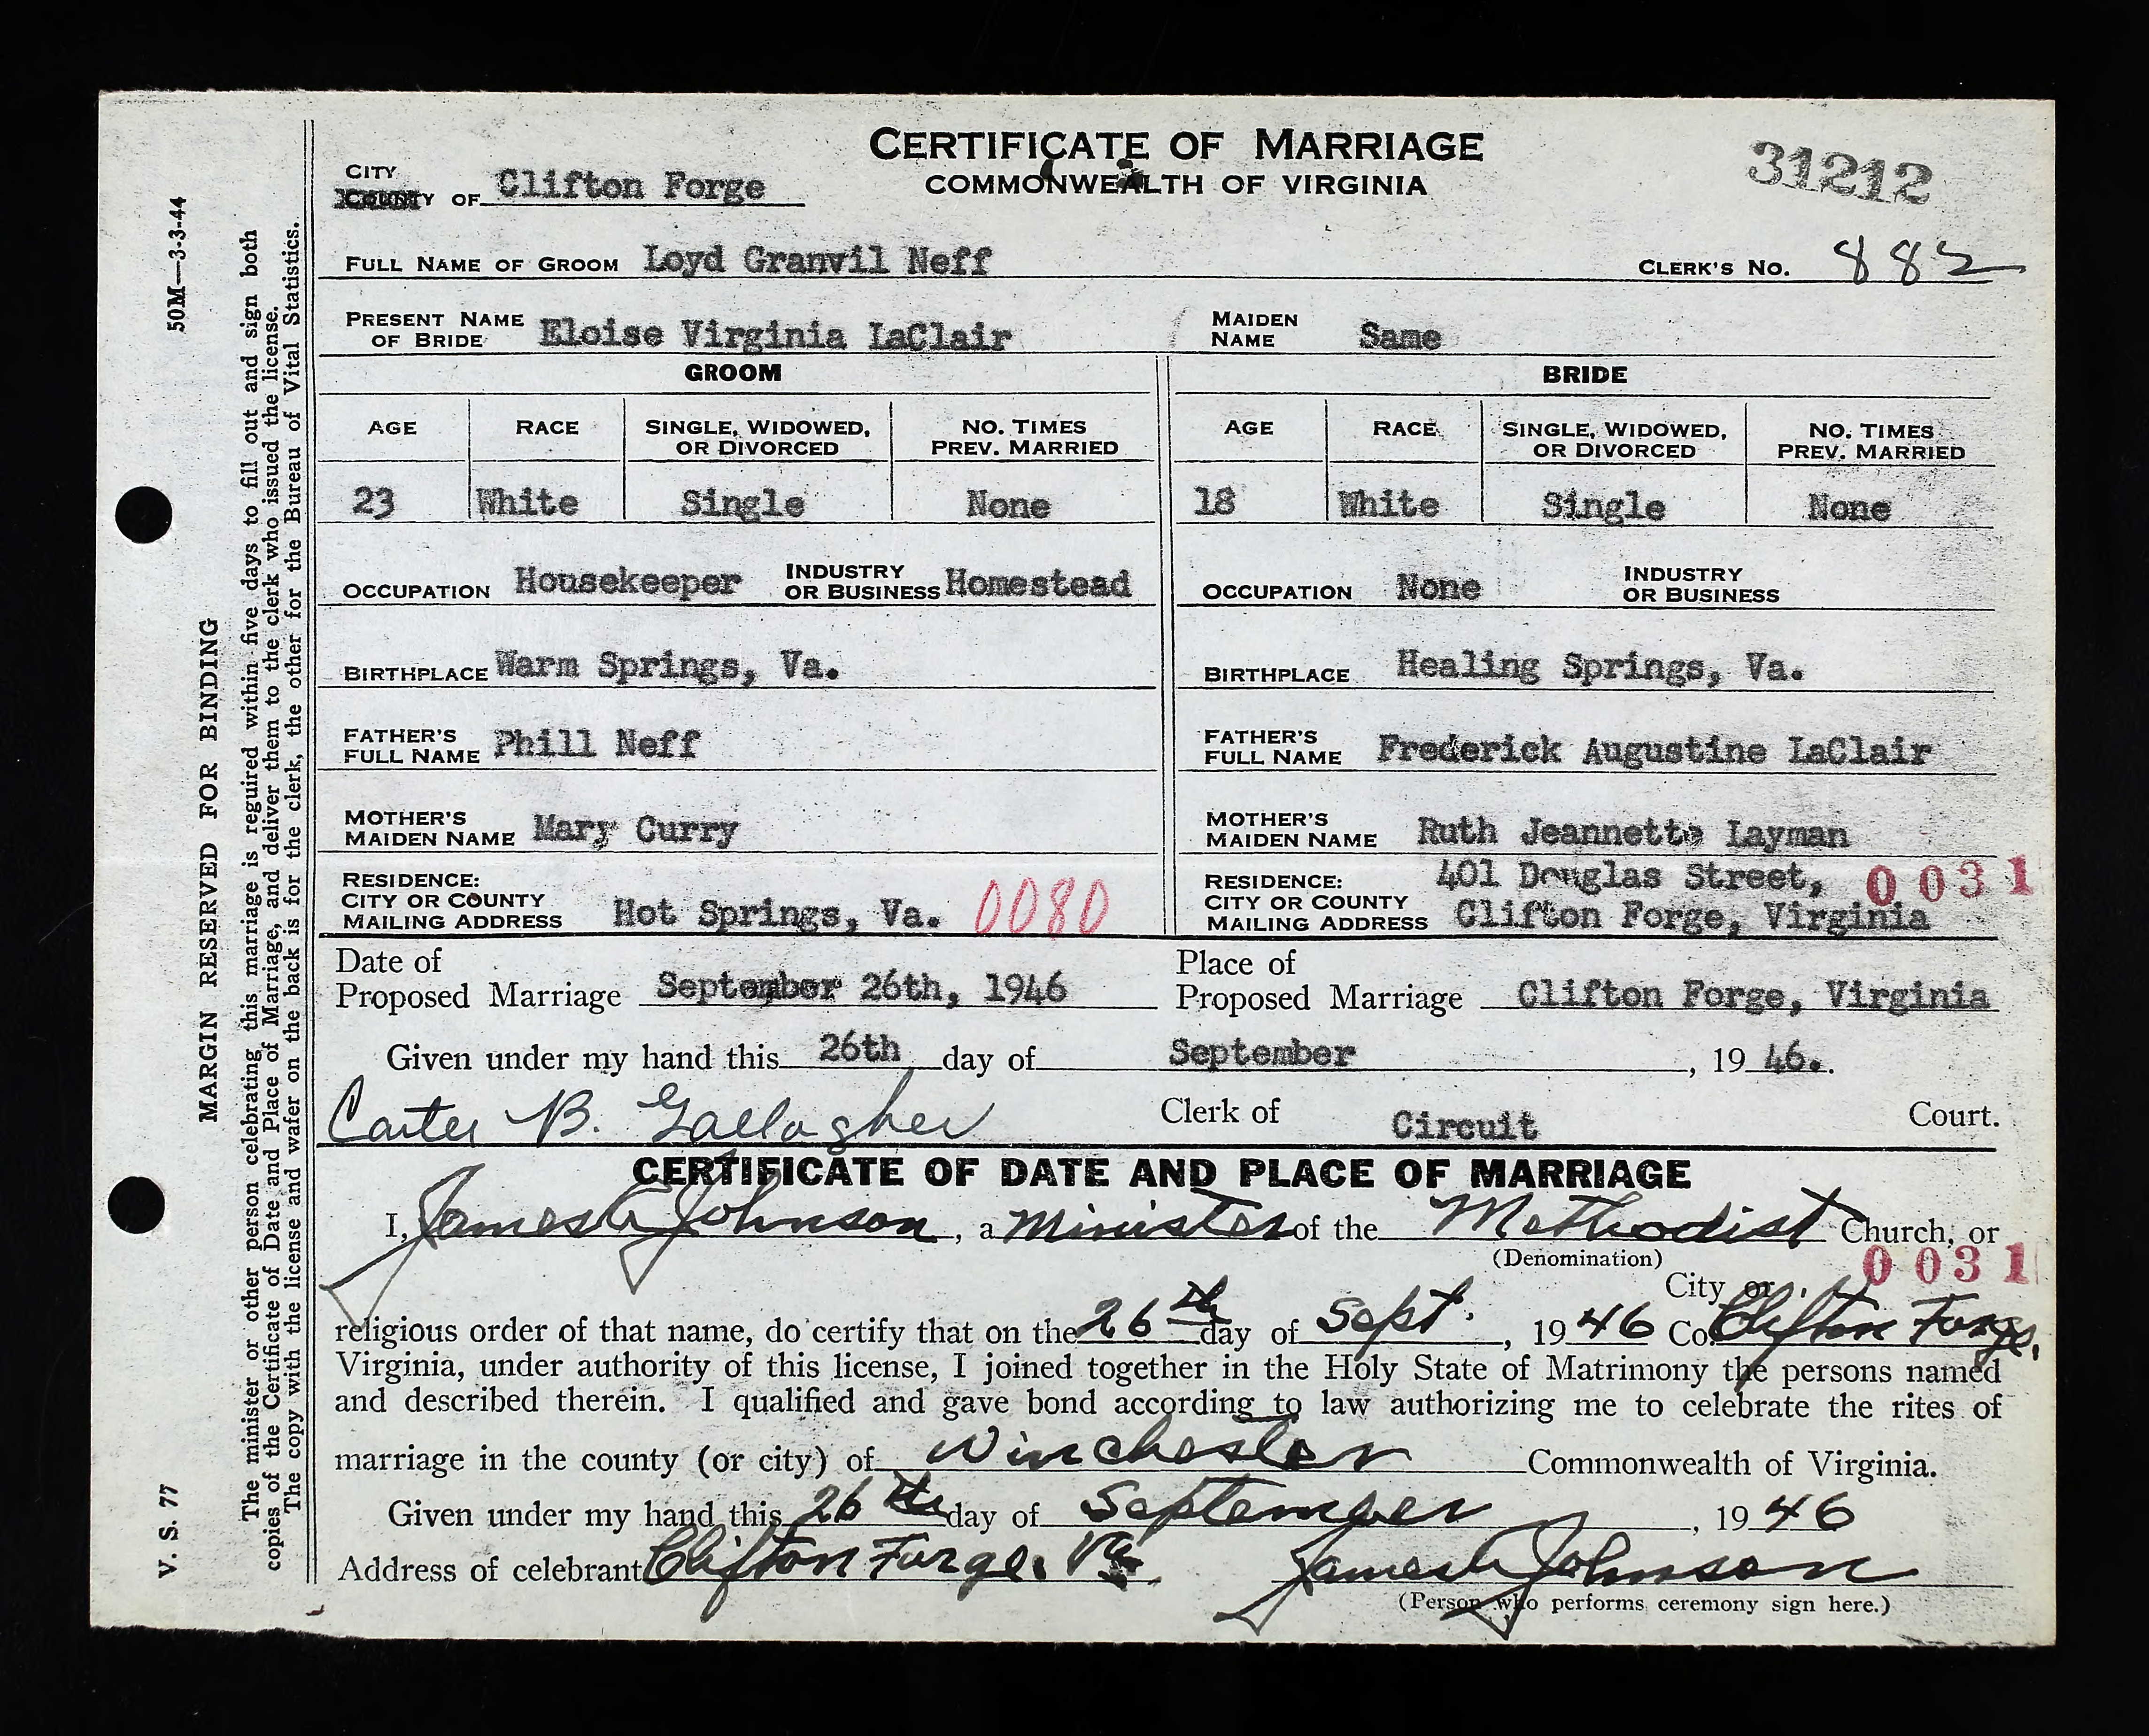 CERTIFICATE OF MARRIAGE
COMMONWEALTH OF VIRGINIA
31212
CITY
COUNTY OF Clifton Forge
FULL NAME OF GROOM Loyd Granvil Neff CLERK'S NO. 882
PRESENT NAME OF BRIDE Eloise Virginia LaClair MAIDEN NAME Same
GROOM BRIDE
AGE RACE SINGLE, WIDOWED, OR DIVORCED NO. TIMES PREV. MARRIED AGE RACE SINGLE, WIDOWED, OR DIVORCED NO. TIMES PREV. MARRIED
23 White Single None 18 White Single None
OCCUPATION Housekeeper INDUSTRY OR BUSINESS Homestead OCCUPATION None INDUSTRY OR BUSINESS
BIRTHPLACE Warm Springs, Va. BIRTHPLACE Healing Springs, Va.
FATHER'S FULL NAME Phill Neff FATHER'S FULL NAME Frederick Augustine LaClair
MOTHER'S MAIDEN NAME Mary Curry MOTHER'S MAIDEN NAME Ruth Jeannette Layman
RESIDENCE: CITY OR COUNTY MAILING ADDRESS Hot Springs, Va. 0080 RESIDENCE: CITY OR COUNTY MAILING ADDRESS 401 Douglas Street, Clifton Forge, Virginia 0031
Date of Proposed Marriage September 26th, 1946 Place of Proposed Marriage Clifton Forge, Virginia
Given under my hand this 26th day of September, 1946.
Carter B. Gallagher Clerk of Circuit Court.
CERTIFICATE OF DATE AND PLACE OF MARRIAGE
I, James Johnson, a Minister of the Methodist Church, or
(Denomination)
0031
City or
religious order of that name, do certify that on the 26th day of Sept., 1946 Co. Clifton Forge,
Virginia, under authority of this license, I joined together in the Holy State of Matrimony the persons named
and described therein. I qualified and gave bond according to law authorizing me to celebrate the rites of
marriage in the county (or city) of Winchester Commonwealth of Virginia.
Given under my hand this 26th day of September, 1946
Address of celebrant Clifton Forge, Va. James Johnson
(Person who performs ceremony sign here.)
V. S. 77 MARGIN RESERVED FOR BINDING 50M—3-3-44
The minister or other person celebrating this marriage is required within five days to fill out and sign both
copies of the Certificate of Date and Place of Marriage, and deliver them to the clerk who issued the license.
The copy with the license and wafer on the back is for the clerk, the other for the Bureau of Vital Statistics.